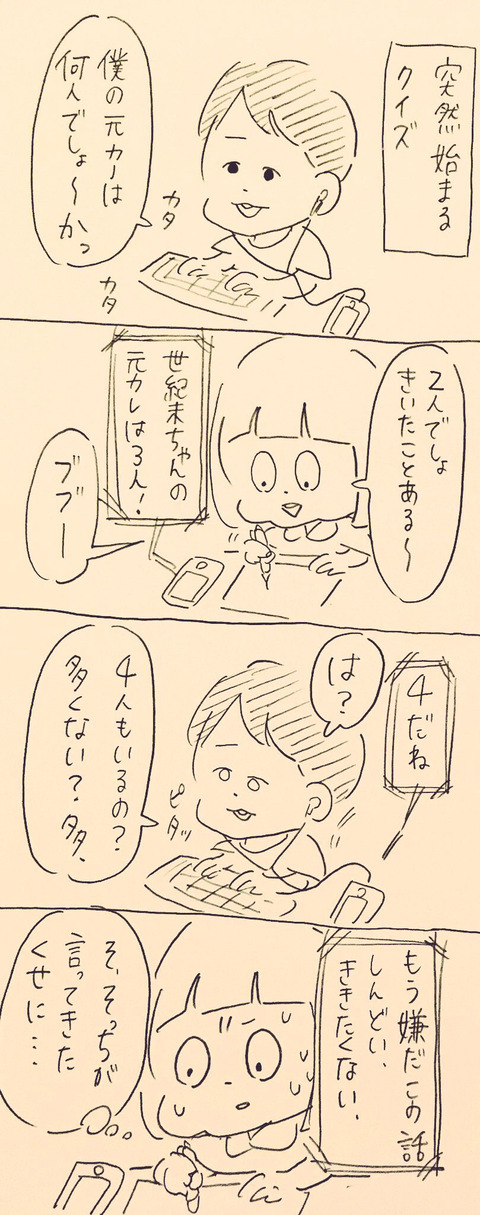 突然始まる
クイズ
僕の元カノは
何人でしょ〜かっ
カタ
カタ
2人でしょ
きいたことある〜
世紀末ちゃんの
元カレは3人!
ブブー
4だね
は?
4人もいるの?
多くない?多、
ピタッ
もう嫌だこの話
しんどい、
ききたくない、
そ、そっちが
言ってきた
くせに…